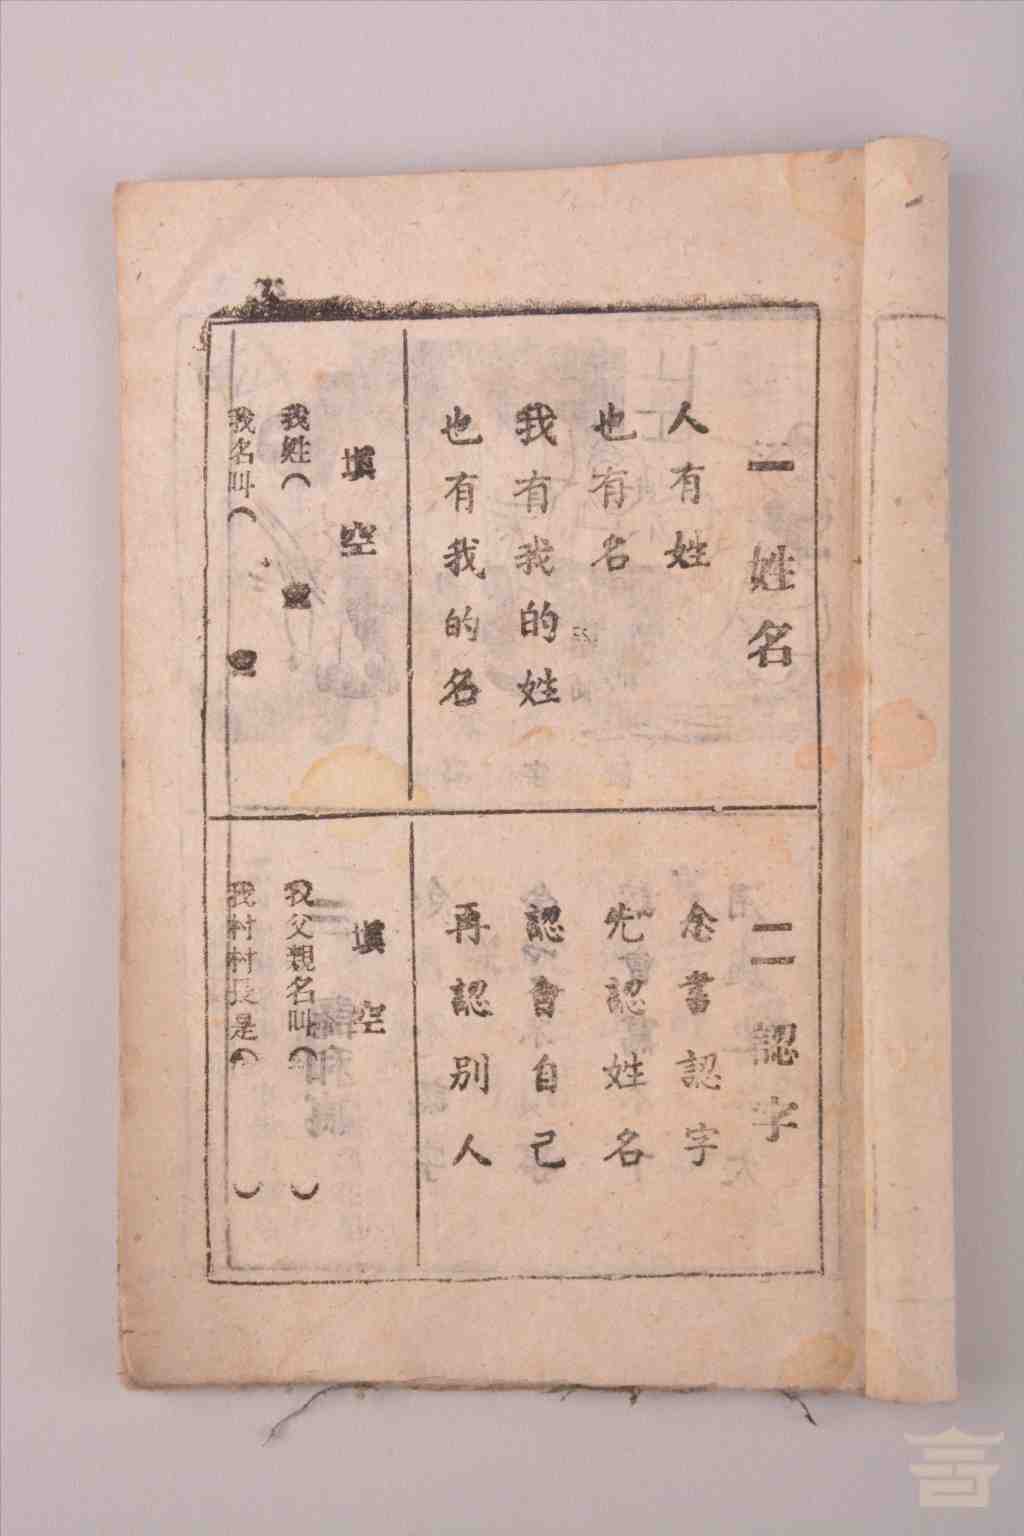 一 姓名
人有姓
也有名
我有我的姓
也有我的名
填空
我姓（
我名叫（
二 認字
念書認字
先認姓名
認會自己
再認別人
填空
我父親名叫（ ）
我村村長是（ ）